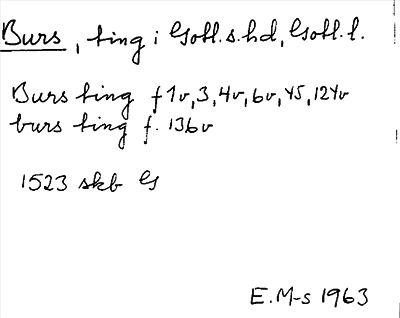 Burs, ting i Gotl. s. hd, Gotl. l.
Burs ting f 1v, 3, 4v, 6v, 45, 124v
burs ting f. 136v
1523 skb G
E.M-s 1963